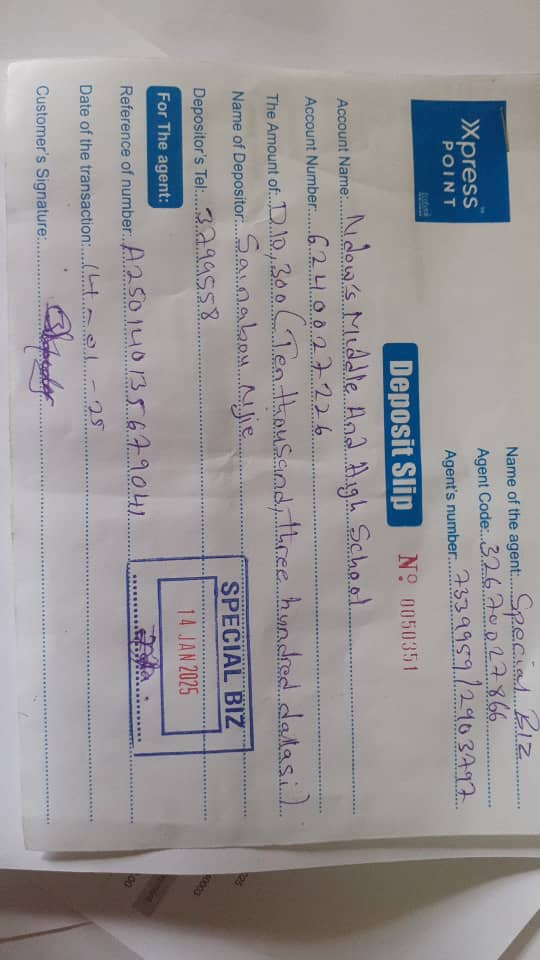 Xpress™
POINT
Name of the agent: Special Biz
Agent Code: 32670027866
Agent's number: 7339959/2903797
Deposit Slip
Nº 0050351
Account Name: Ndow's Middle And High School
Account Number: 6240027226
The Amount of: D10,300 (Ten thousand, three hundred dalasi)
Name of Depositor: Sainabou Njie
Depositor's Tel: 3799558
For The agent:
Reference of number: A250140135679041
Date of the transaction: 14-01-25
Customer's Signature:
SPECIAL BIZ
14 JAN 2025